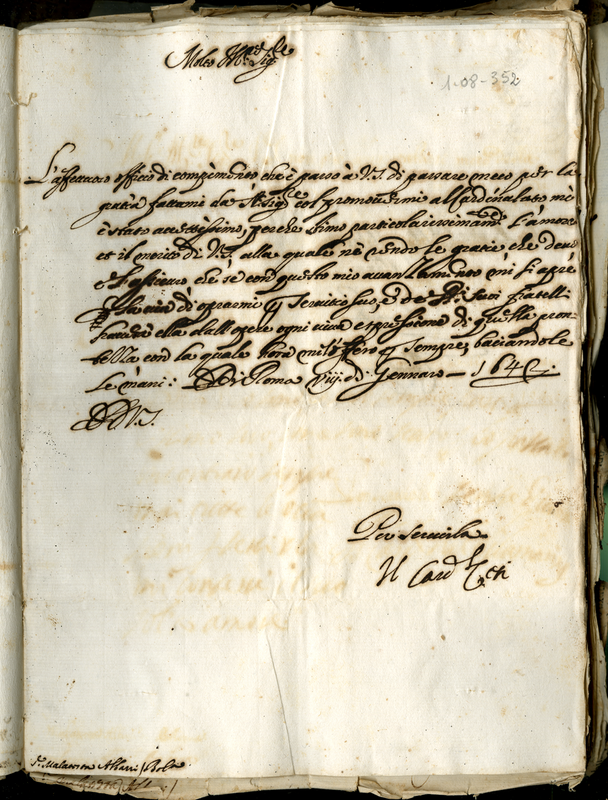 Molto Ill.re Sig.re
1-08-352
L'affettuoso officio di complimento che è parso à V.S. di passare meco per la
gratia fattami da N. Sig.re col promovermi al Cardinalato mi
è stato accettissimo, perche stimo particolarissimam.te l'amore
et il merito di V.S., alla quale nè rendo le gratie che devo
e l'assicuro che se con questo mio avanzamento mi si aprè
la via di oprarmi in servitio suo, e de suoi fratelli
ella dall'opere ogni viva espressione di quella pron-
tezza con la quale hora mi offero sempre, baciandole
le mani: Di Roma viij. di Gennaro 164
D V.S.
Per servirla
Il Card.l
S.r Altani